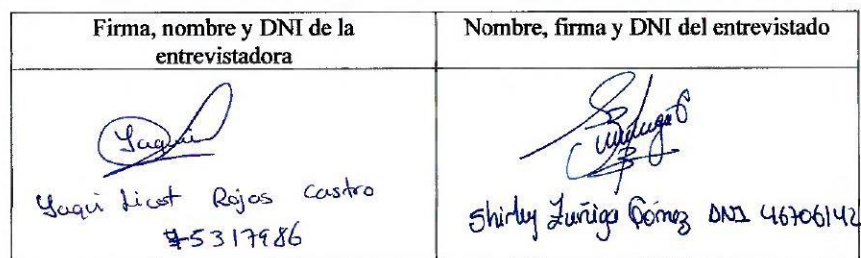 Firma, nombre y DNI de la
entrevistadora
Nombre, firma y DNI del entrevistado
Yaqui
Yaqui Licet Rojas Castro
75317986
Zuñiga G
Shirley Zuñiga Gómez DNI 46706142